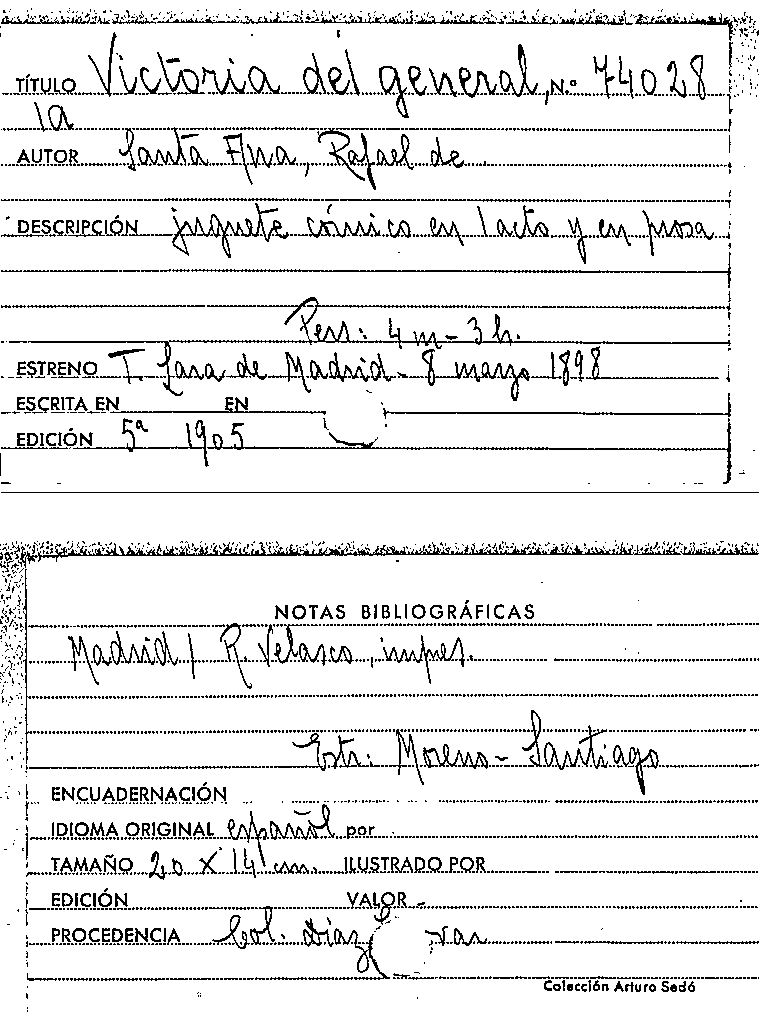 TÍTULO Victoria del general, N.º 74028
la
AUTOR Santa Ana, Rafael de
DESCRIPCIÓN juguete cómico en 1 acto y en prosa
Pers: 4 m - 3 h.
ESTRENO T. Lara de Madrid - 8 marzo 1898
ESCRITA EN EN
EDICIÓN 5ª 1905
NOTAS BIBLIOGRÁFICAS
Madrid / R. Velasco, impres.
Estr: Moreno - Santiago
ENCUADERNACIÓN
IDIOMA ORIGINAL español por
TAMAÑO 20 X 14 cm. ILUSTRADO POR
EDICIÓN VALOR -
PROCEDENCIA Col. Díaz
Colección Arturo Sedó